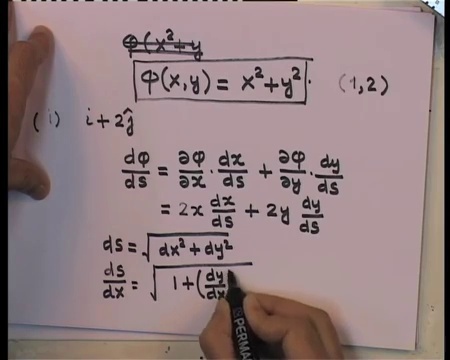 φ(x²+y
φ(x,y) = x²+y². (1,2)
(i) i+2ĵ
dφ/ds = ∂φ/∂x · dx/ds + ∂φ/∂y · dy/ds
= 2x dx/ds + 2y dy/ds
ds = √(dx²+dy²)
ds/dx = √(1+(dy/dx
PERMA